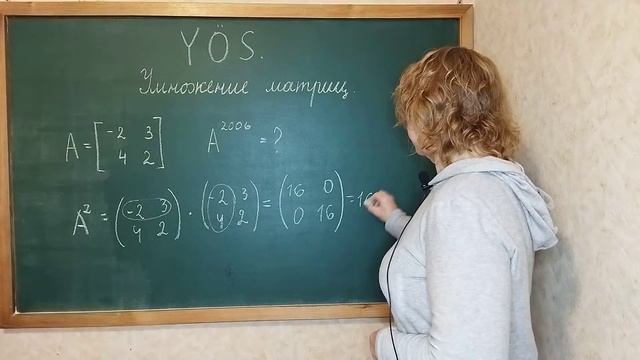 YÖS.
Умножение матриц.
A = [-2 3 4 2] A^2006 = ?
A^2 = (-2 3 4 2) · (-2 3 4 2) = (16 0 0 16) = 16